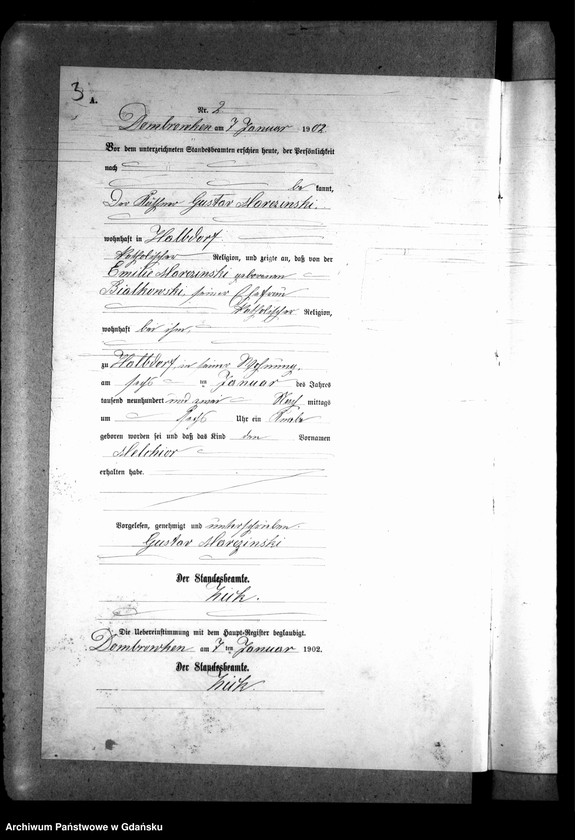 3
A.
Nr. 2
Dombrowken am 7 Januar 1902
Vor dem unterzeichneten Standesbeamten erschien heute, der Persönlichkeit
nach
be kannt,
Der Gustav Marczinski.
wohnhaft in Halbdorf
katholischer Religion, und zeigte an, daß von der
Emilie Marczinski geborenen
Bialkowski, seiner Ehefrau
katholischer Religion,
wohnhaft bei ihm,
zu Halbdorf, in seiner Wohnung,
am sechs ten Januar des Jahres
tausend neunhundert und zwei Nach mittags
um sechs Uhr ein Knabe
geboren worden sei und daß das Kind den Vornamen
Melchior
erhalten habe.
Vorgelesen, genehmigt und unterschrieben.
Gustav Marczinski
Der Standesbeamte.
Die Uebereinstimmung mit dem Haupt-Register beglaubigt.
Dombrowken am 7 ten Januar 1902.
Der Standesbeamte.
Archiwum Państwowe w Gdańsku